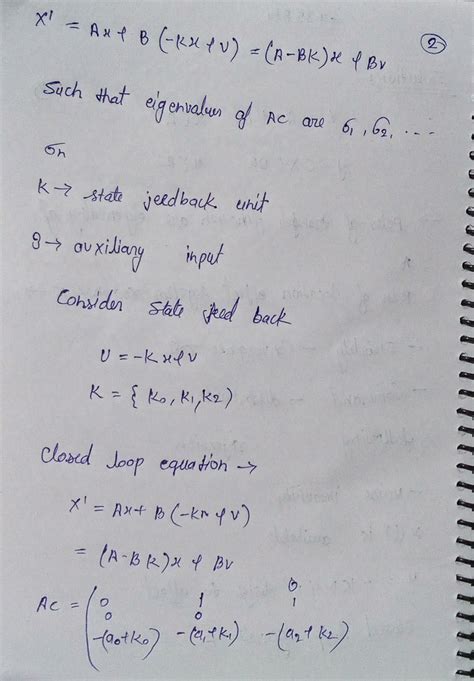 ②
X' = Ax + B (-Kx + v) = (A-BK)x + Bv
Such that eigenvalues of Ac are σ1, σ2, ....
σn
K → state feedback unit
9 → auxiliary input
Consider State feed back
U = -Kx + v
K = { K0, K1, K2)
Closed loop equation →
X' = Ax + B (-Kx + v)
= (A-BK)x + Bv
0 1 0
Ac = ( 0 0 1
-(a0+K0) -(a1+K1) -(a2+K2) )